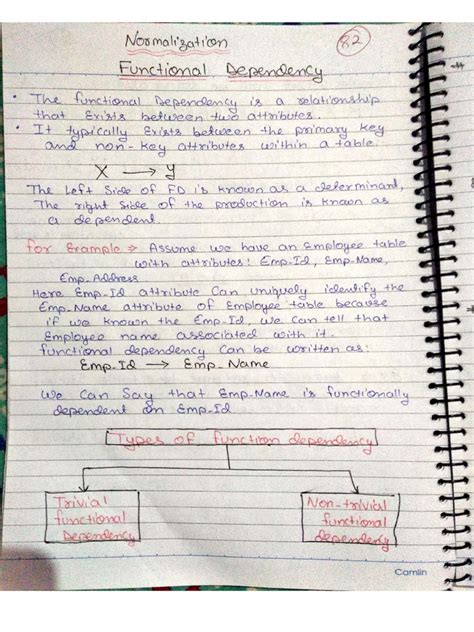 Normalization
82
Functional Dependency
• The functional Dependency is a relationship
that Exists between two attributes.
• It typically Exists between the primary key
and non-key attributes within a table.
X → Y
The Left Side of FD is known as a determinant,
The right side of the production is known as
a dependent.
for Example ⇒ Assume we have an Employee table
with attributes: Emp-Id, Emp-Name,
Emp-Address
Here Emp-Id attribute Can uniquely identify the
Emp-Name attribute of Employee table because
if we known the Emp-Id, we can tell that
Employee name associated with it.
functional dependency Can be written as:
Emp-Id → Emp-Name
We Can Say that Emp-Name is functionally
dependent on Emp-Id
Types of function dependency
Trivial
functional
Dependency
Non-trivial
functional
dependency
Camlin